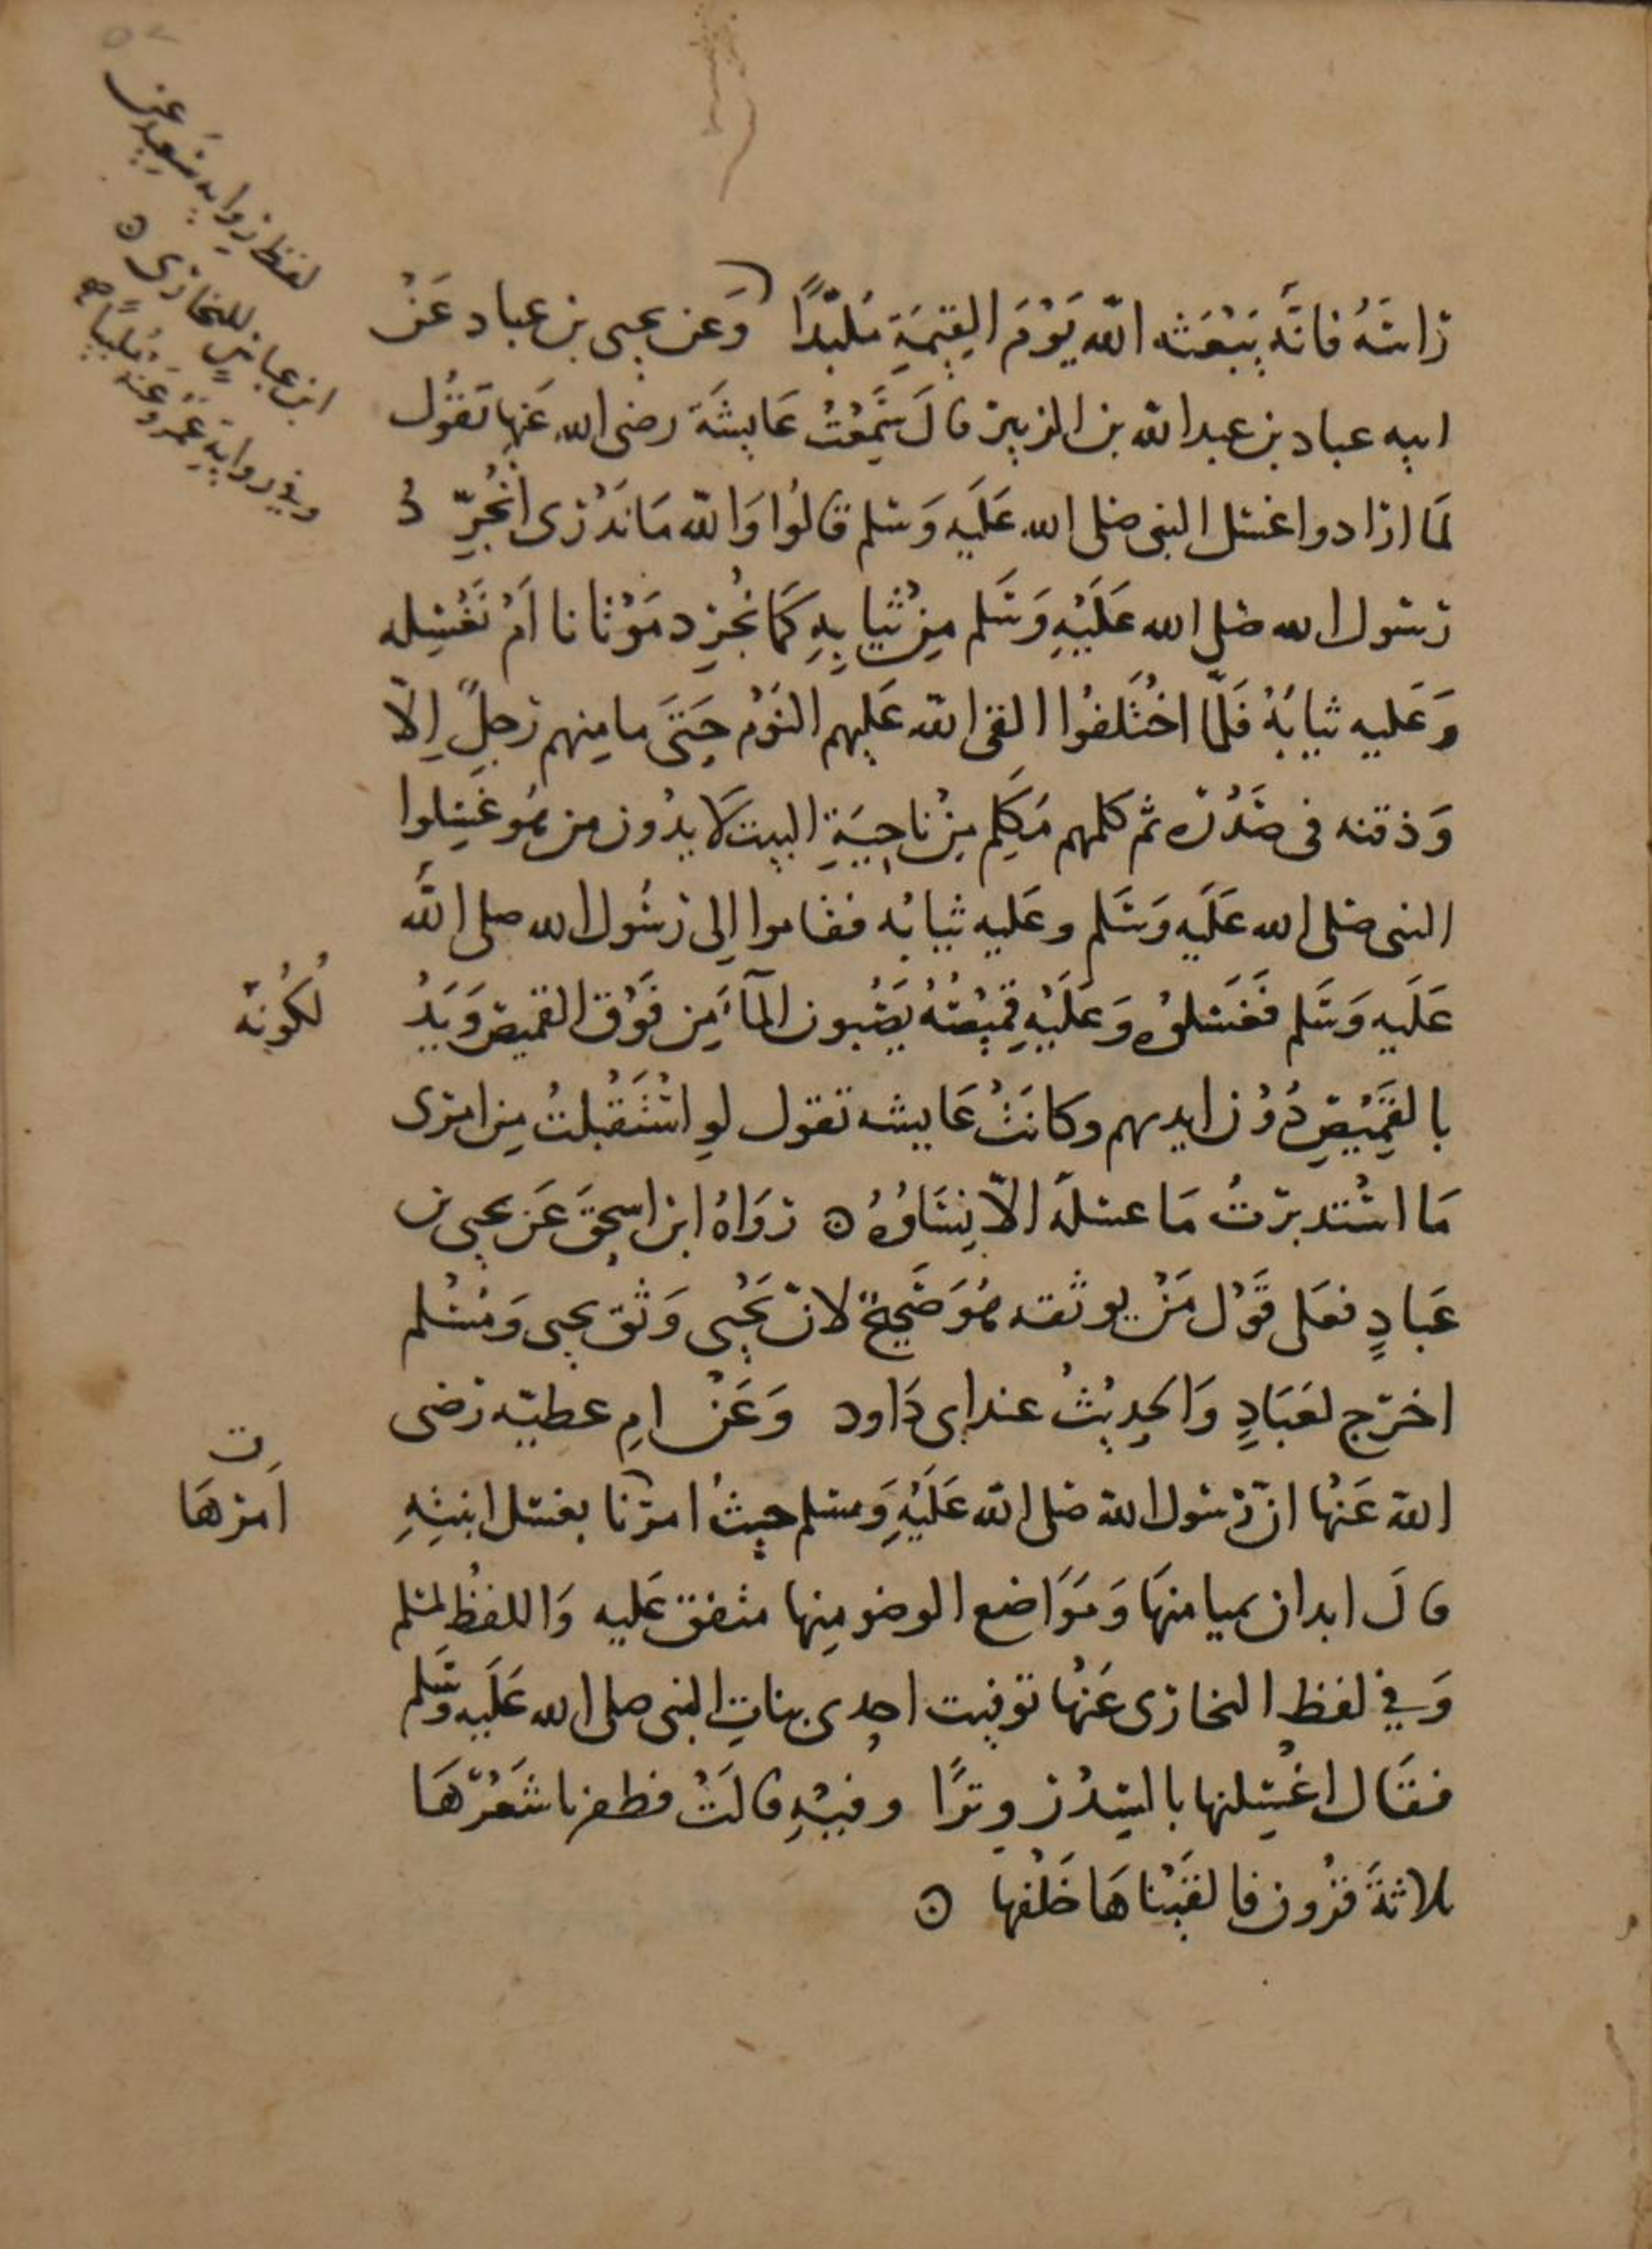 راسَهُ فانَّه يَبْعَثه اللّه يَوْمَ القِيمَةِ مُلَبّدًا وَعن يحيى بن عباد عَنْ
ابيه عباد بن عبد اللّه بن الزبير قالَ سَمِعْتُ عَايشَة رضى الله عَنها تَقوُل
لَما ارادوا غسل النبى صلى الله عَلَيه وَسلم قالُوا وَاللّه مَا نَدْرى انُجرِّدُ
رَسُول الله صلى الله عَلَيْهِ وَسَلم مِنْ ثيابِهِ كَما نُجرِد مَوْتانا اَمْ نَغْسِله
وَعَليه ثيابُهُ فَلمّا اخْتَلفُوا القى اللّه عَليهم النَوْم حَتىَ ما مِنهم رَجلٌ اِلّا
وَذقنه فى صَدْره ثم كلمهم مَكَلِم مِنْ ناحِيَةِ البيت لَا يدْرُون من هُو غَسِلوا
النبى صلى الله عَلَيه وَسَلم وعَليه ثيابُه فقاموا اِلى رَسُول الله صلى اللّه
عَلَيه وَسَلم فَغَسَلوُه وَعَلَيْهِ قمِيْصُهُ يَصُبون المآءَ مِن فَوْق القميص وَيَدْلُكُونَهُ
بالقَمِيْصِ دُوْن ايديهم وكانَتْ عَايشه تقول لوِ اسْتَقْبلتُ مِن امرى
مَا اسْتَدبرْتُ مَا غسلَه الّا نِسَاؤُهُ ه رَوَاهُ ابن اسحقَ عَن يحيى بن
عَبادٍ فعَلى قَوْل مَنْ يوثقه هُوَ صَحِيْحٌ لانّ يَحْيى وَثق يحيى وَمُسْلم
اخرَج لعَبَادٍ وَالحدِيْثُ عند ابى دَاود وَعَنْ امِ عطيّه رَضى
اللّه عَنْها انّ رَسُول اللّه صلى اللّه عَلَيْهِ وَسلم حيثُ امرَنا بغسل ابنتِهِ
قالَ ابدان بميامنهَا وَمَوَاضع الوضو مِنها متفق عَليه وَاللفظُ لمسلم
وَفي لفظ البخارى عَنْها توفيت احدى بناتِ النبى صلى الله عَلَيه وَسَلم
فقَال اغْسِلنها بالسِدْر وِترًا وفيْهِ قالَتْ فظفرنا شَعْرَهَا
ثلاثةَ قرُون فالقَيْناهَا خَلْفها ه
امرهَا
لفظ رِواية سَعِيد عن
ابن عباسٍ للبخارى ه
وفي روايةِ عَمْرٍو عَنه مُلبيًا